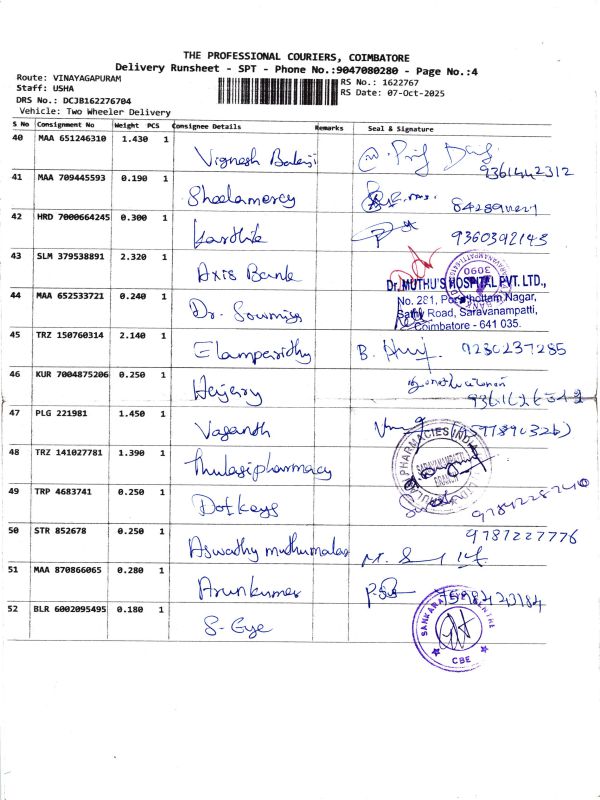 THE PROFESSIONAL COURIERS, COIMBATORE
Delivery Runsheet - SPT - Phone No.:9047080280 - Page No.:4
Route: VINAYAGAPURAM
Staff: USHA
DRS No.: DCJB162276704
Vehicle: Two Wheeler Delivery
RS No.: 1622767
RS Date: 07-Oct-2025
S No Consignment No Weight PCS Consignee Details Remarks Seal & Signature
40 MAA 651246310 1.430 1 Vignesh Balaji
9361442312
41 MAA 709445593 0.190 1 Sheelamercy
42 HRD 7000664245 0.300 1 Karthik 9360392143
43 SLM 379538891 2.320 1 Axis Bank
3090
Dr. MUTHU'S HOSPITAL PVT. LTD.,
No. 281, Poothottam Nagar,
Sathy Road, Saravanampatti,
Coimbatore - 641 035.
44 MAA 652533721 0.240 1 Dr. Sowmiya
45 TRZ 150760314 2.140 1 Elamparidhy B. 9230237285
46 KUR 7004875206 0.250 1
47 PLG 221981 1.450 1 Vasanth
48 TRZ 141027781 1.390 1 Thulasipharmacy
PHARMACIES INDIA
SARAVANAMPATTI
BRANCH
49 TRP 4683741 0.250 1 Dotkeys
50 STR 852678 0.250 1 Aswathy muthumalar 9787227776
51 MAA 870866065 0.280 1 Arunkumar
52 BLR 6002095495 0.180 1 S-Eye
SANKARA EYE CENTRE
CBE